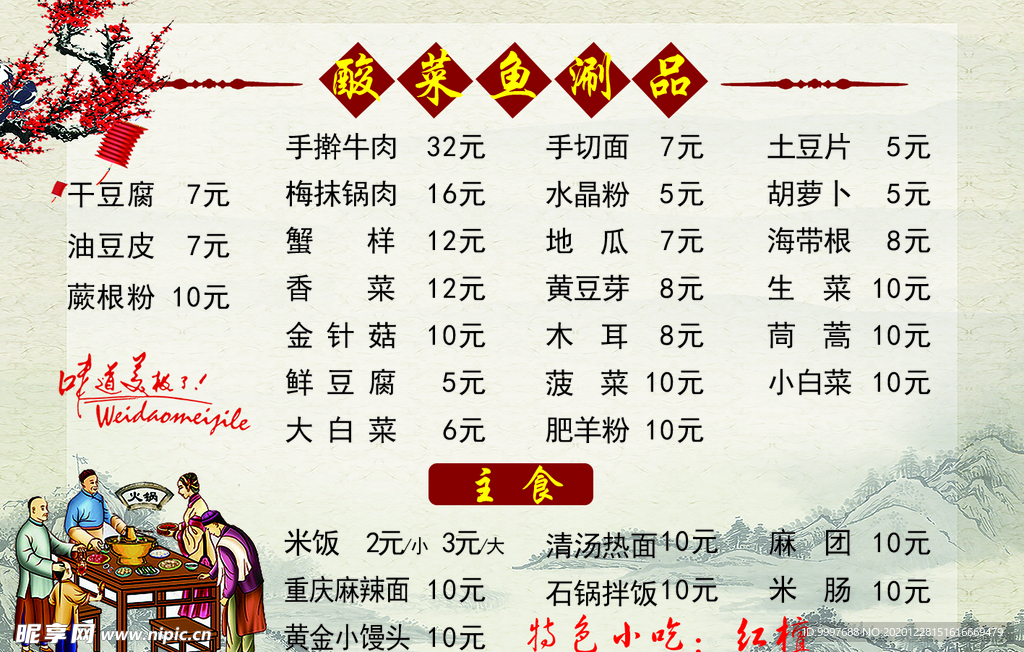 酸菜鱼涮品
干豆腐 7元
油豆皮 7元
蕨根粉 10元
手擀牛肉 32元
梅抹锅肉 16元
蟹样 12元
香菜 12元
金针菇 10元
鲜豆腐 5元
大白菜 6元
手切面 7元
水晶粉 5元
地瓜 7元
黄豆芽 8元
木耳 8元
菠菜 10元
肥羊粉 10元
土豆片 5元
胡萝卜 5元
海带根 8元
生菜 10元
茼蒿 10元
小白菜 10元
味道美极了!
Weidaomeijile
火锅
主食
米饭 2元/小 3元/大
重庆麻辣面 10元
黄金小馒头 10元
清汤热面 10元
石锅拌饭 10元
麻团 10元
米肠 10元
特色小吃:红檀
昵享网 www.nipic.cn
ID:9997688 NO:20201228151616669479